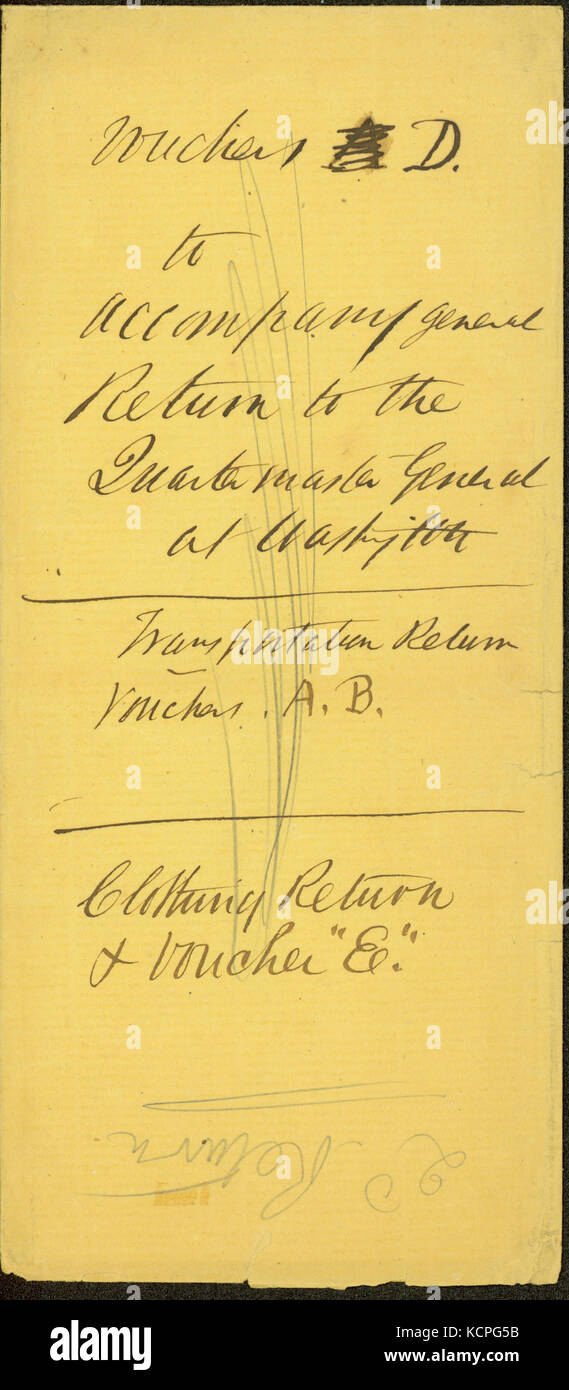 Vouchers D.
to
accompany general
Return to the
Quartermaster General
at Washington
Transportation Return
Vouchers. A. B.
Clothing Return
& Voucher "E".
Return
alamy
Image ID: KCPG5B
www.alamy.com